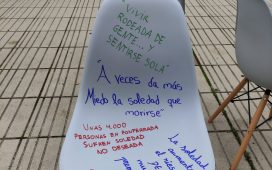 "VIVIR
RODEADA DE
GENTE... Y
SENTIRSE SOLA"
"A veces da más
Miedo la soledad que
morirse"
UNAS 4.000
PERSONAS EN PONFERRADA
SUFREN SOLEDAD
NO DESEADA
La soledad
aumenta
el ries
DE